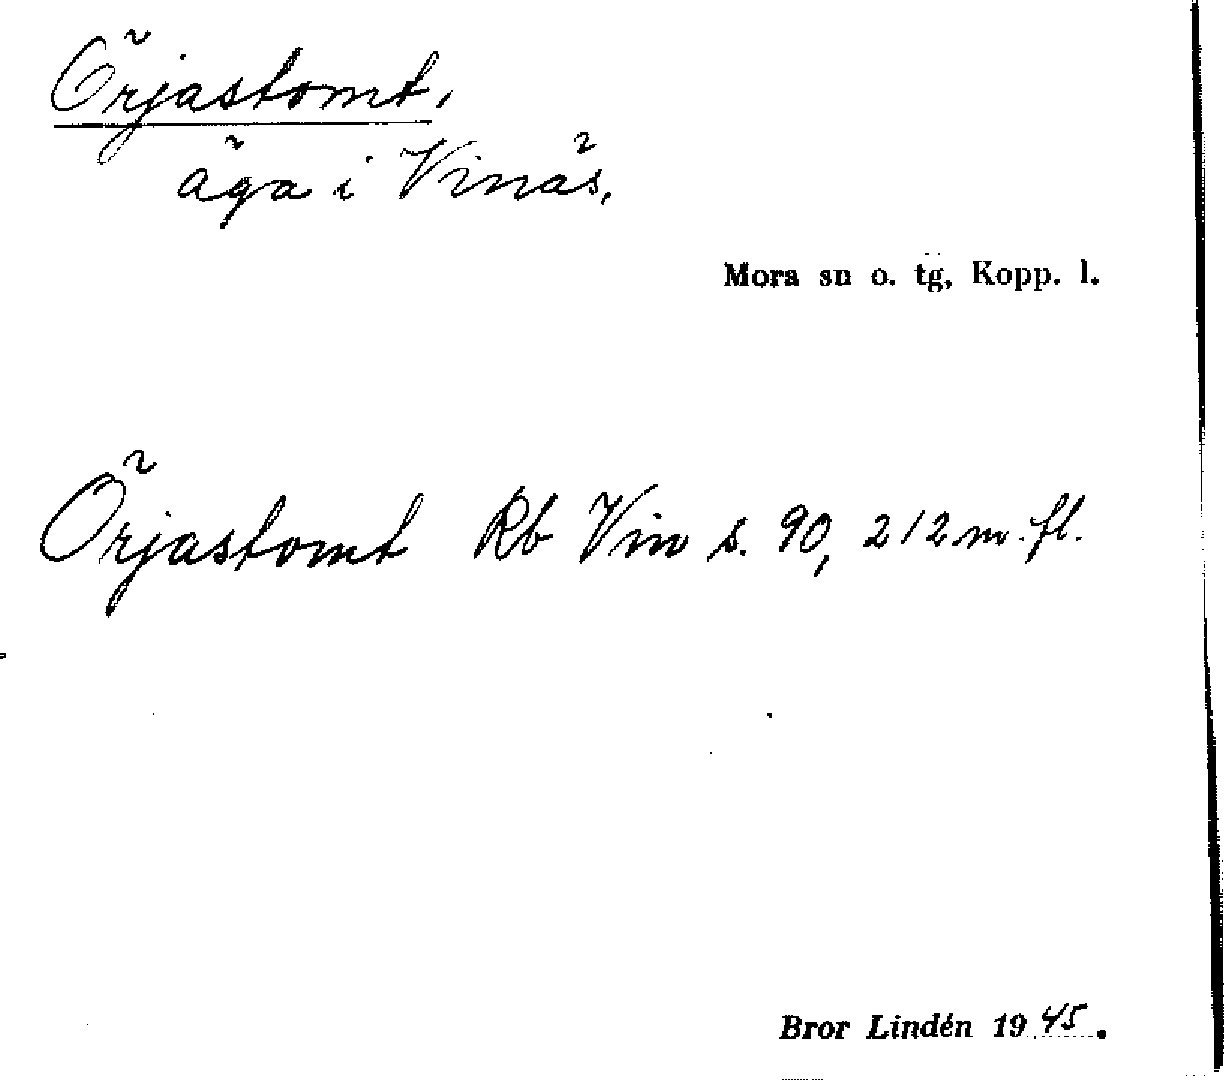 Örjastomt,
äga i Vinäs,
Mora sn o. tg, Kopp. l.
Örjastomt Rb Vin s. 90, 212 m. fl.
Bror Lindén 1945.